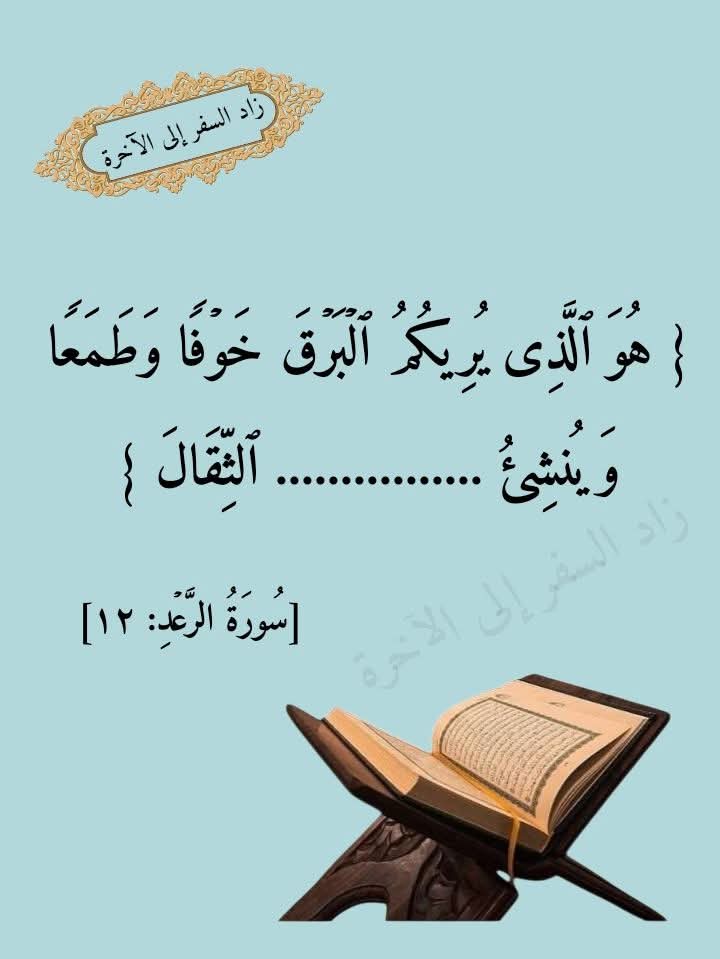 زاد السفر إلى الآخرة
{ هُوَ ٱلَّذِى يُرِيكُمُ ٱلْبَرْقَ خَوْفًا وَطَمَعًا
وَيُنشِئُ ................ ٱلثِّقَالَ }
زاد السفر إلى الآخرة
[سُورَةُ الرَّعْدِ: ١٢]